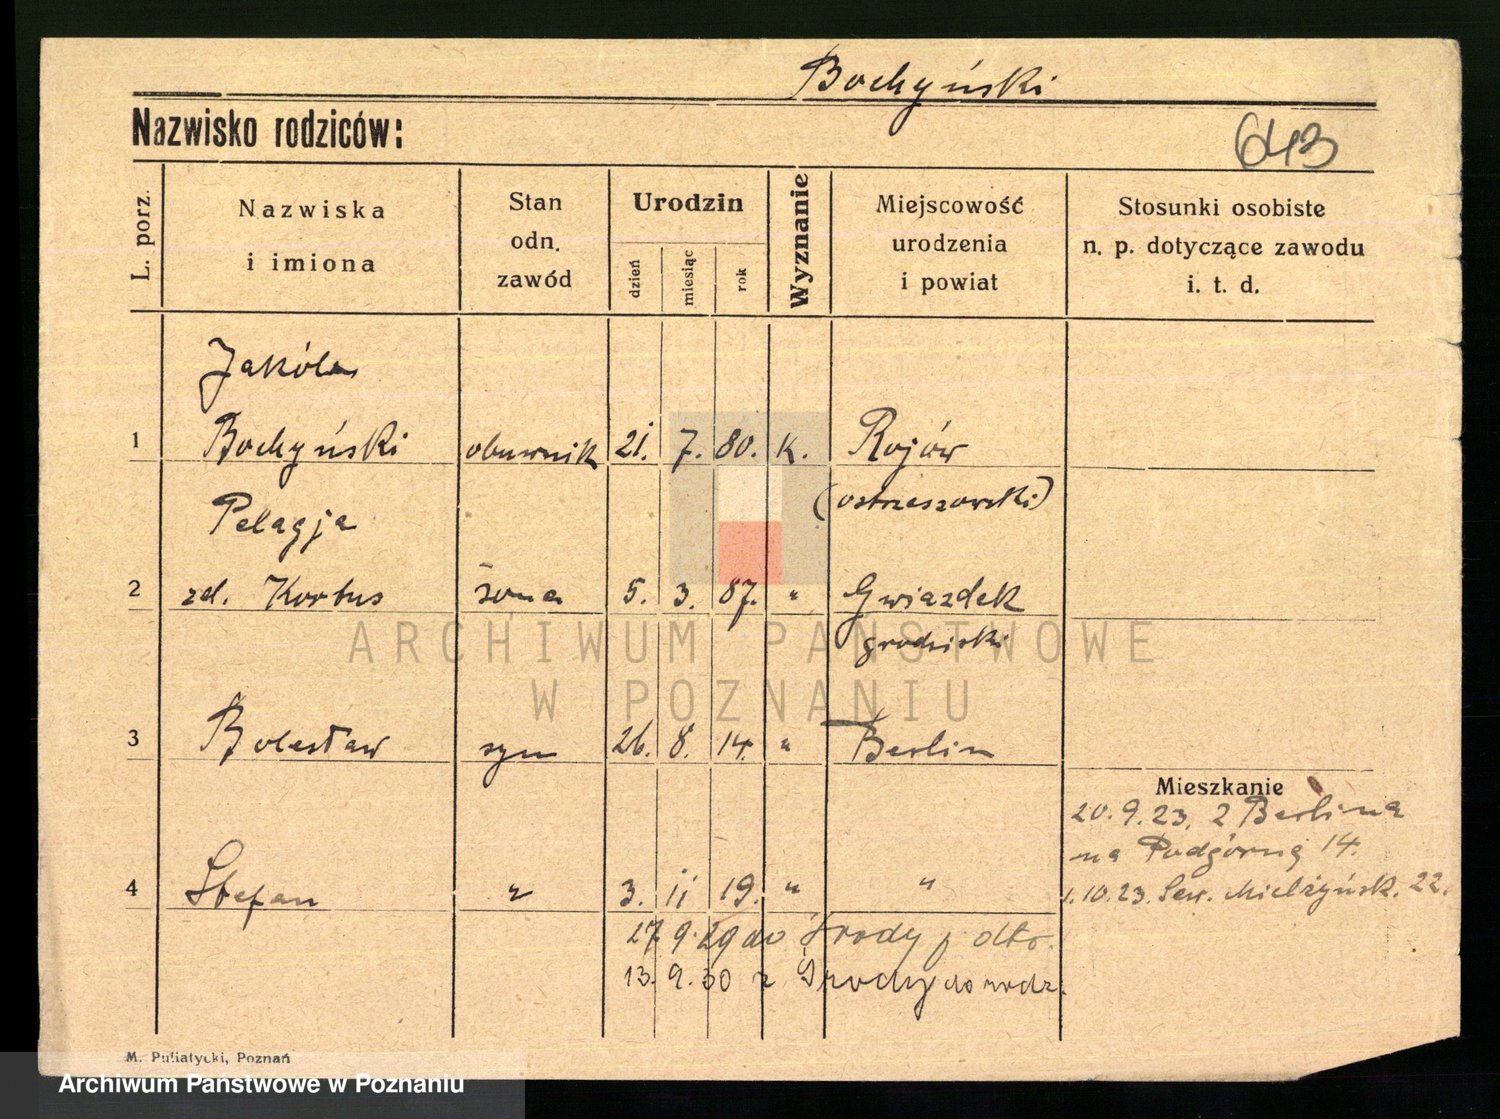 Bochyński
Nazwisko rodziców:
643
L. porz.
Nazwiska
i imiona
Stan
odn.
zawód
Urodzin
dzień
miesiąc
rok
Wyznanie
Miejscowość
urodzenia
i powiat
Stosunki osobiste
n. p. dotyczące zawodu
i. t. d.
Jakób
1 Bochyński obuwnik 21. 7. 80. K. Rojów
(ostrzeszowski)
Pelagja
2 zd. Kortus żona 5. 3. 87. " Gwiazdek
grodziski
3 Bolesław syn 26. 8. 14. " Berlin
Mieszkanie
20.9.23. z Berlina
na Podgórną 14.
4 Stefan " 3. 11 19. " "
1.10.23. Sew. Mielżyńsk. 22.
27.9.29 do Środy
13.9.30 z Środy do rodz.
M. Putiatycki, Poznań
ARCHIWUM PAŃSTWOWE
W POZNANIU
Archiwum Państwowe w Poznaniu